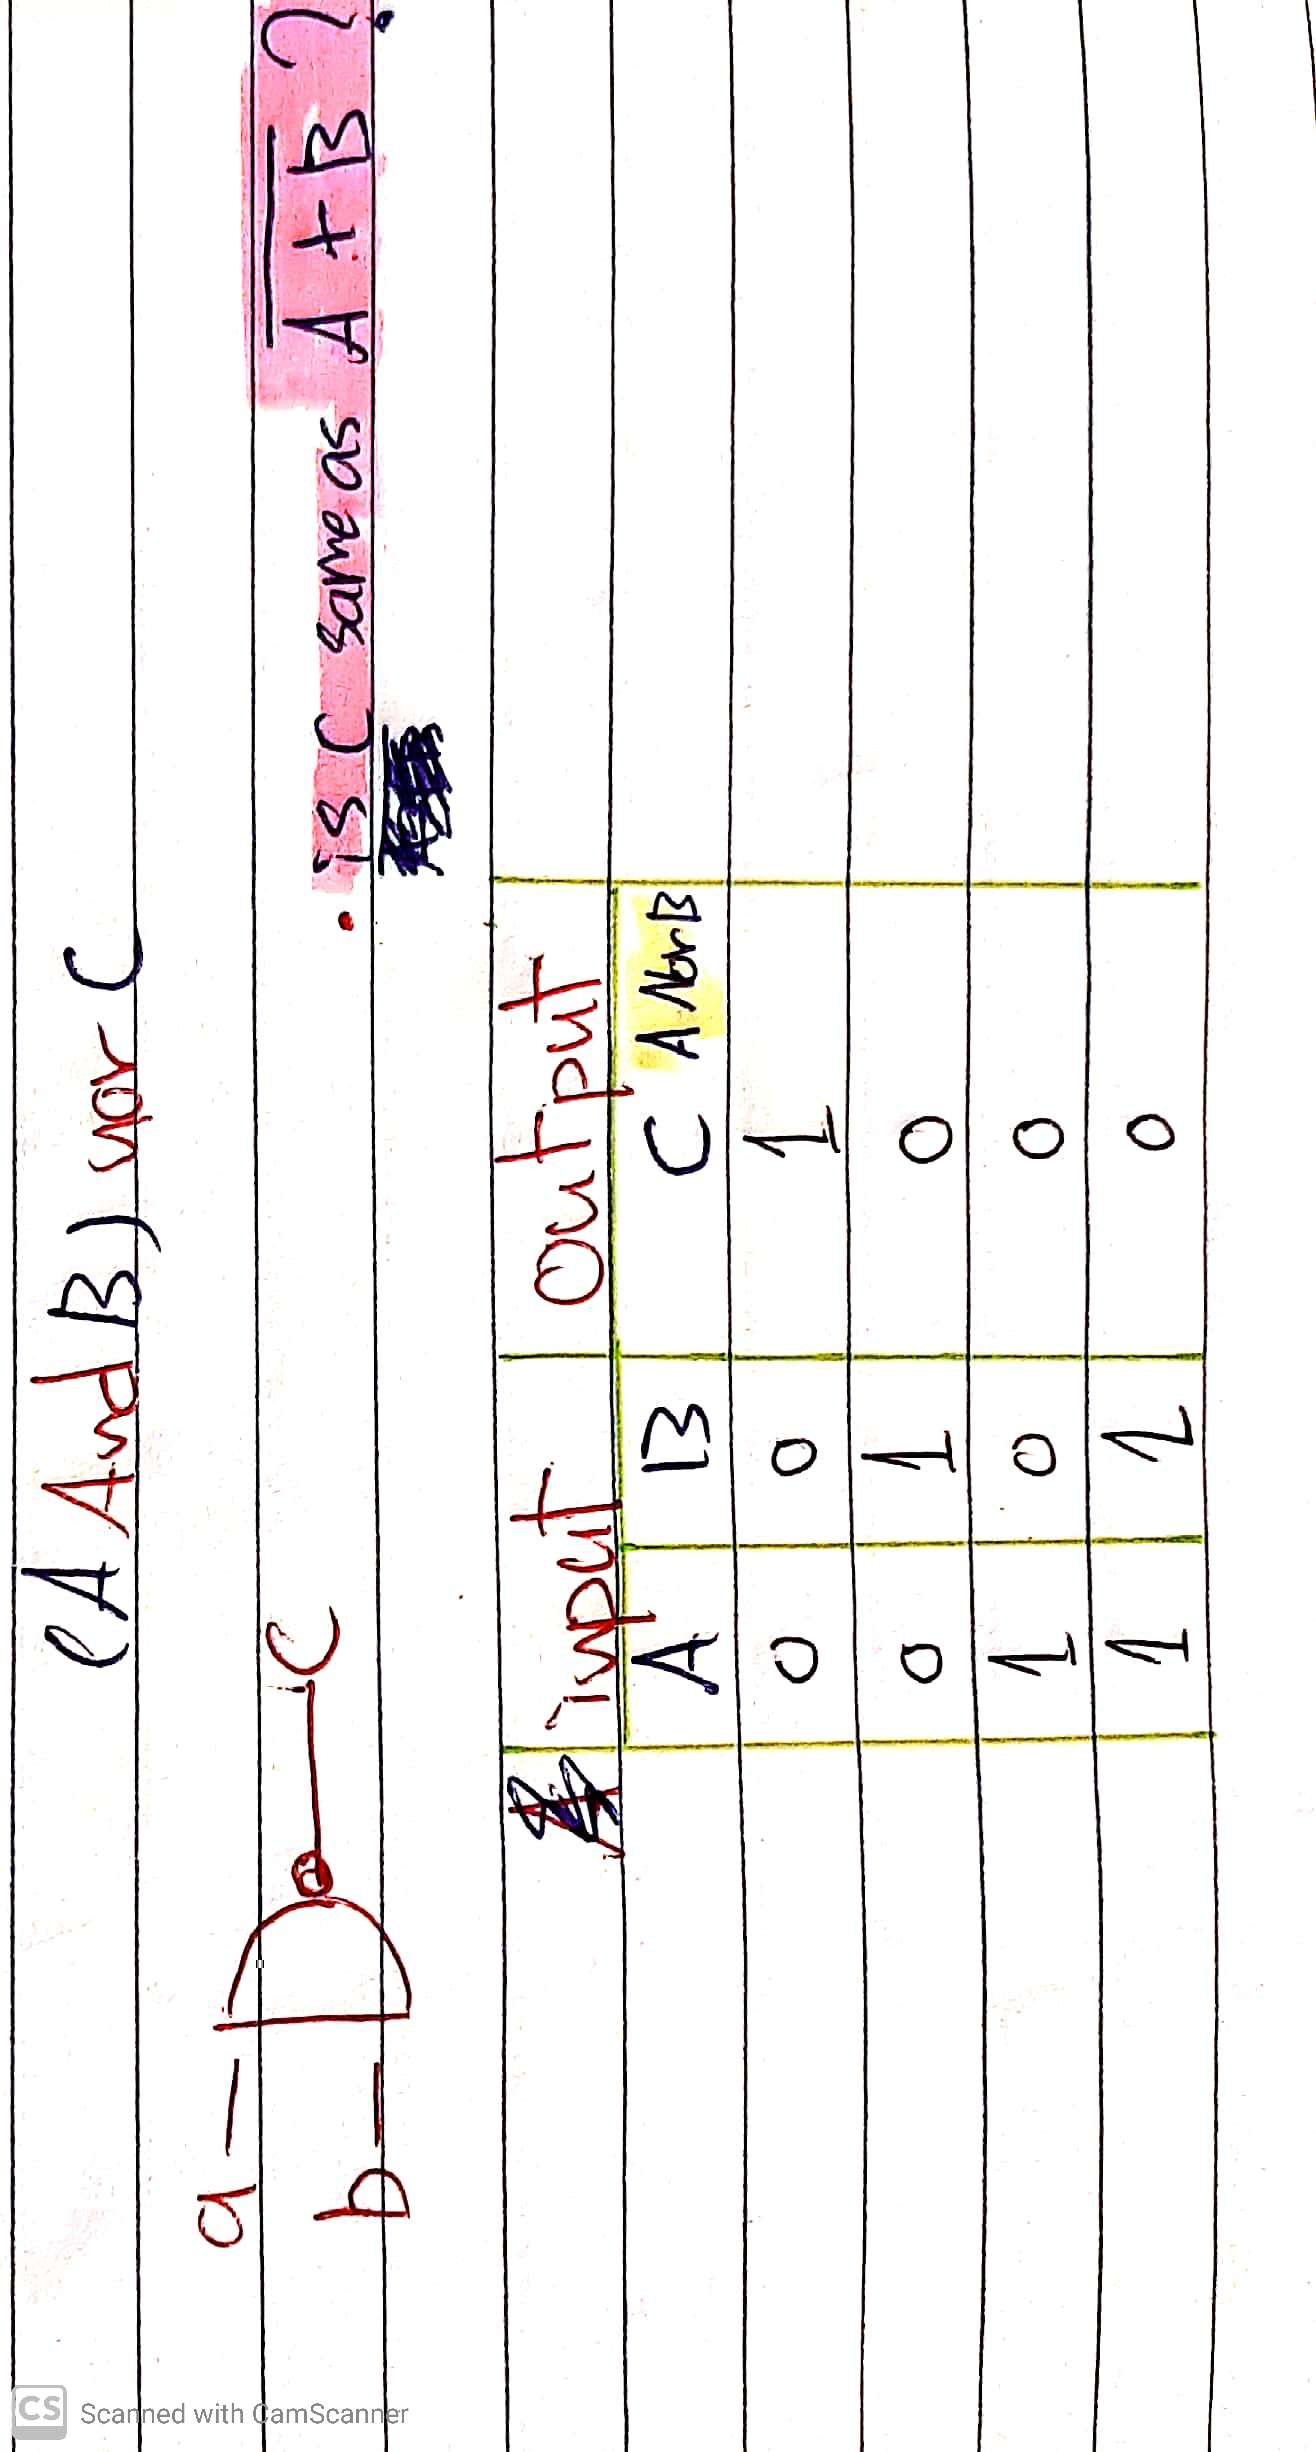 (A And B) nor C
a
b
C
. is C same as A + B ?
input output
A B C A Nor B
0 0 1
0 1 0
1 0 0
1 1 0
CS Scanned with CamScanner